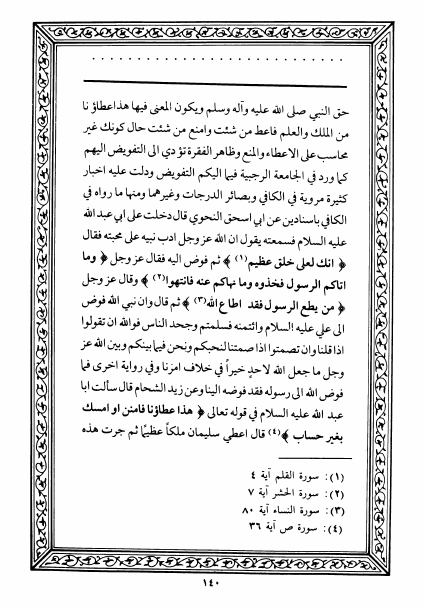 حق النبي صلى الله عليه وآله وسلم ويكون المعنى فيها هذا عطاؤنا
من الملك والعلم فاعط من شئت وامنع من شئت حال كونك غير
محاسب على الاعطاء والمنع وظاهر الفقرة تؤدي الى التفويض اليهم
كما ورد في الجامعة الرجبية فيما اليكم التفويض ودلت عليه اخبار
كثيرة مروية في الكافي وبصائر الدرجات وغيرهما ومنها ما رواه في
الكافي باسنادين عن ابي اسحق النحوي قال دخلت على ابي عبد الله
عليه السلام فسمعته يقول ان الله عز وجل ادب نبيه على محبته فقال
﴿ انك لعلى خلق عظيم(١) ﴾ ثم فوض اليه فقال عز وجل ﴿ وما
اتاكم الرسول فخذوه وما نهاكم عنه فانتهوا(٢) ﴾ وقال عز وجل
﴿ من يطع الرسول فقد اطاع الله(٣) ﴾ ثم قال وان نبي الله فوض
الى علي عليه السلام وائتمنه فسلمتم وجحد الناس فوالله ان تقولوا
اذا قلنا وان تصمتوا اذا صمتنا لنحبكم ونحن فيما بينكم وبين الله عز
وجل ما جعل الله لاحدٍ خيراً في خلاف امرنا وفي رواية اخرى فما
فوض الله الى رسوله فقد فوضه الينا وعن زيد الشحام قال سألت ابا
عبد الله عليه السلام في قوله تعالى ﴿ هذا عطاؤنا فامنن او امسك
بغير حساب ﴾(٤) قال اعطي سليمان ملكاً عظيماً ثم جرت هذه
(١): سورة القلم آية ٤
(٢): سورة الحشر آية ٧
(٣): سورة النساء آية ٨٠
(٤): سورة ص آية ٣٦
١٤٠